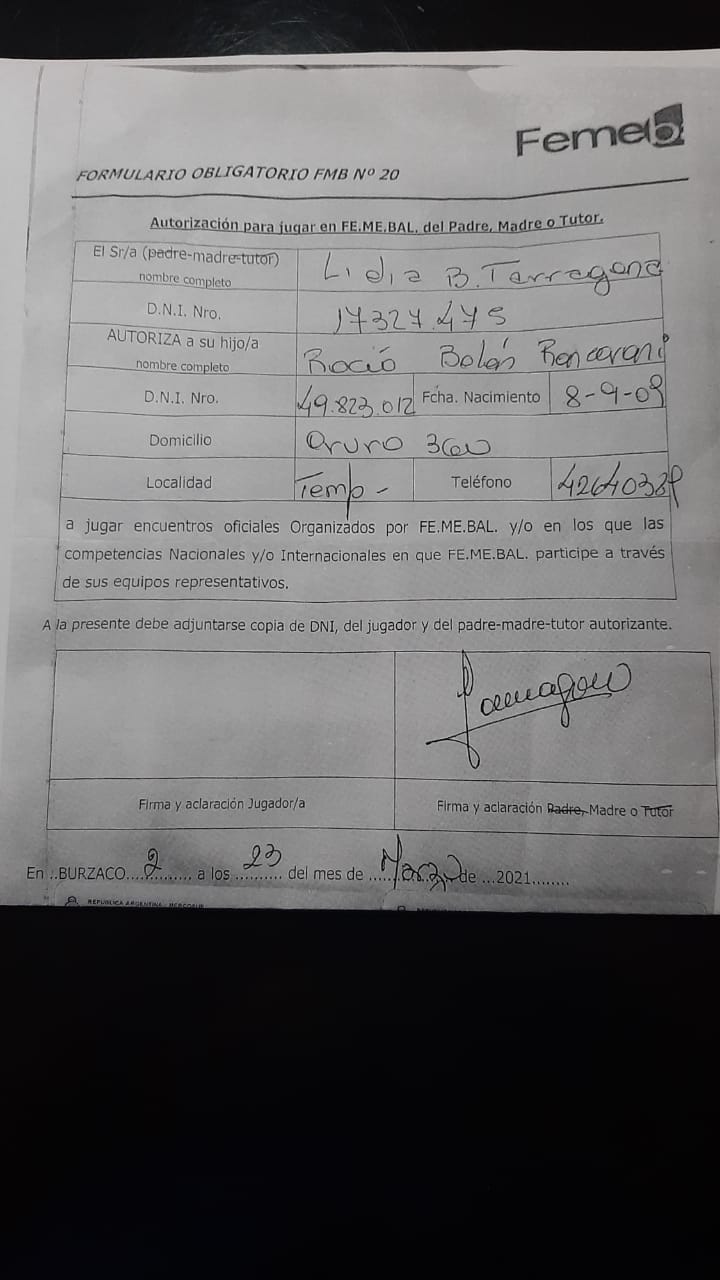 Femeb
FORMULARIO OBLIGATORIO FMB Nº 20
Autorización para jugar en FE.ME.BAL. del Padre, Madre o Tutor.
El Sr/a (padre-madre-tutor) nombre completo Lidia B. Tarragona
D.N.I. Nro. 17327.475
AUTORIZA a su hijo/a nombre completo Rocío Belén
D.N.I. Nro. 49.823.012 Fcha. Nacimiento 8-9-09
Domicilio Oruro
Localidad Temp - Teléfono
a jugar encuentros oficiales Organizados por FE.ME.BAL. y/o en los que las
competencias Nacionales y/o Internacionales en que FE.ME.BAL. participe a través
de sus equipos representativos.
A la presente debe adjuntarse copia de DNI, del jugador y del padre-madre-tutor autorizante.
Firma y aclaración Jugador/a
Firma y aclaración Padre, Madre o Tutor
En ..BURZACO....2....... a los ...23... del mes de ...Marzo...de ...2021........
REPUBLICA ARGENTINA - MERCOSUR